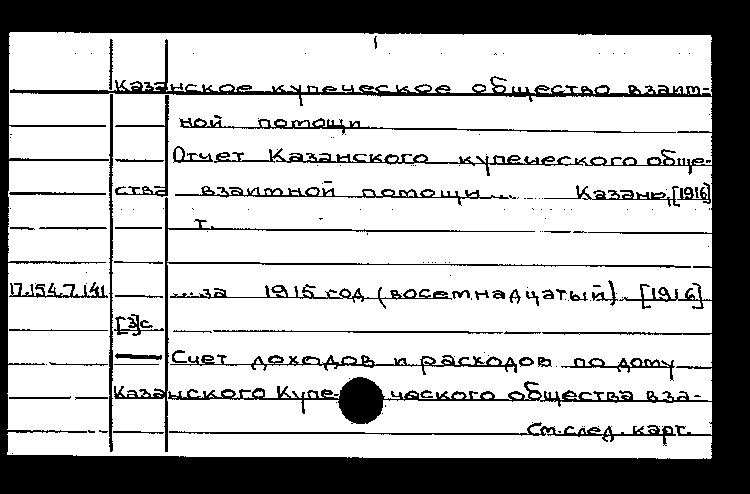 Казанское купеческое общество взаим-
ной помощи
Отчет Казанского купеческого обще-
ства взаимной помощи... Казань, [1916]
т.
17.154.7.141 ...за 1915 год (восемнадцатый). [1916]
[3]с.
Счет доходов и расходов по дому
Казанского Купеческого общества вза-
См. след. карт.